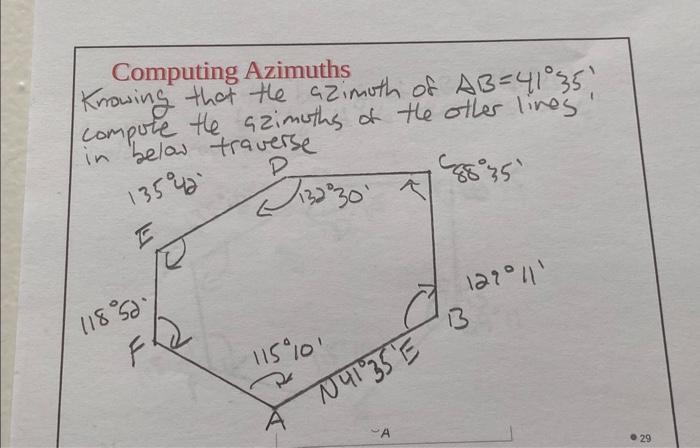 Computing Azimuths
Knowing that the azimuth of AB=41°35'
compute the azimuths of the other lines
in below traverse
D
C
88°35'
135°42'
132°30'
E
129°11'
118°52'
B
F
115°10'
N41°35'E
A
A
29